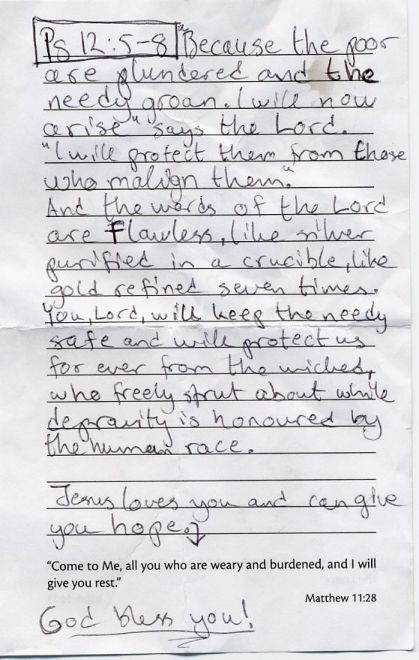 Ps 12:5-8 "Because the poor
are plundered and the
needy groan. I will now
arise" says the Lord.
"I will protect them from those
who malign them."
And the words of the Lord
are flawless, like silver
purified in a crucible, like
gold refined seven times.
You, Lord, will keep the needy
safe and will protect us
for ever from the wicked,
who freely strut about while
depravity is honoured by
the human race.
Jesus loves you and can give
you hope.
"Come to Me, all you who are weary and burdened, and I will
give you rest."
Matthew 11:28
God bless you!